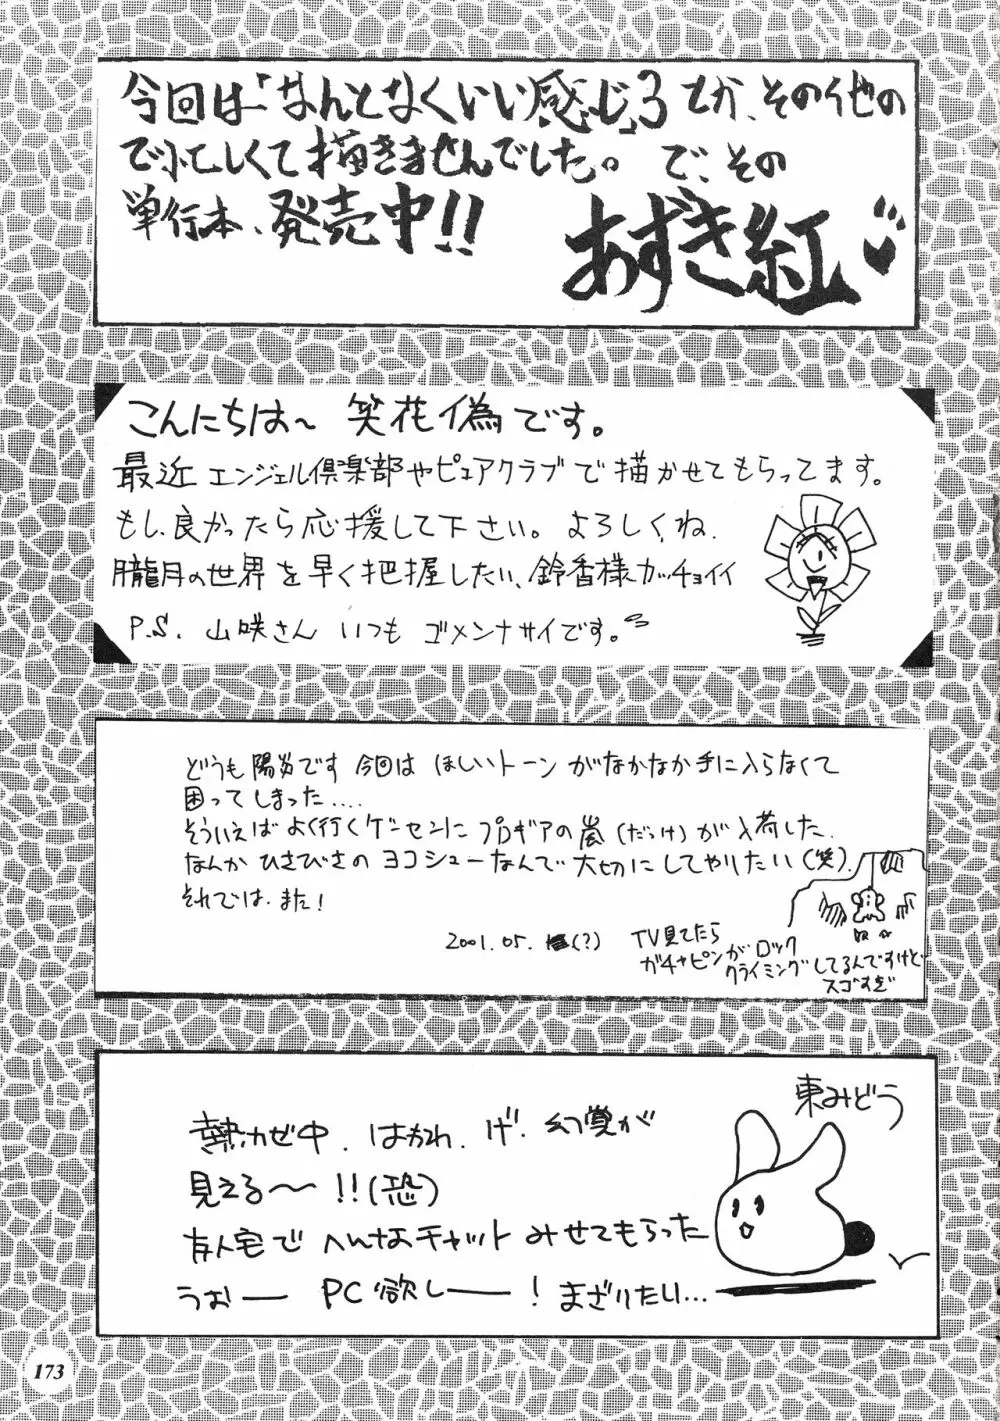 今回は「なんとなくいい感じ」3とか、その他の
で忙しくて描きませんでした。で、その
単行本、発売中!!
あずき紅
こんにちは〜 笑花偽です。
最近エンジェル倶楽部やピュアクラブで描かせてもらってます。
もし良かったら応援して下さい。よろしくね
朧月の世界を早く把握したい、鈴香様カッチョイイ
P.S. 山咲さん いつも ゴメンナサイです。
どうも陽炎です 今回は ほしいトーン がなかなか手に入らなくて
困ってしまった....
そういえば よく行くゲーセンに プロギアの嵐(だっけ)が入荷した.
なんか ひさびさの ヨコシューなんで 大切にしてやりたい(笑).
それでは、また!
2001.05. (?)
TV見てたら
ガチャピンがロック
クライミングしてるんですけど
スゴすぎ
東みどう
熱カゼ中. はかれ. げ. 幻覚が
見える〜 !!(恐)
友人宅で へんなチャット みせてもらった
うおー PC欲しー! まざりたい...
173